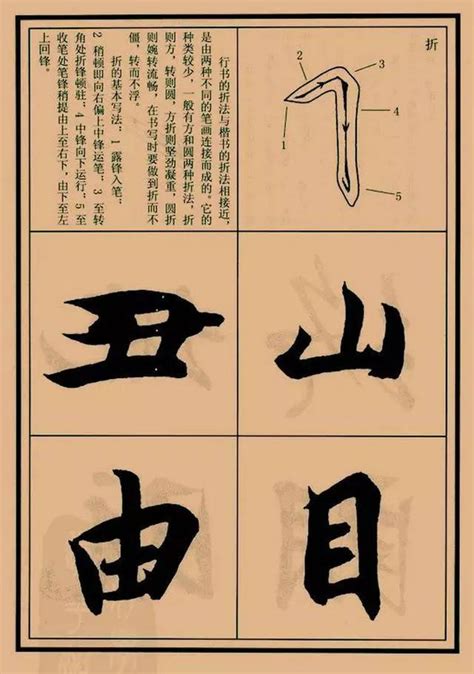 折
2
3
4
1
5
行书的折法与楷书的折法相接近,
是由两种不同的笔画连接而成的。它的
种类较少,一般有方和圆两种折法,折
则方,转则圆,方折则坚劲凝重,圆折
则婉转流畅,在书写时要做到折而不
僵,转而不浮。
折的基本写法:1 露锋入笔;
2 稍顿即向右偏上中锋运笔;3 至转
角处折锋顿驻;4 中锋向下运行,5 至
收笔处笔锋稍提由上至右下,由下至左
上回锋。
山
丑
目
由